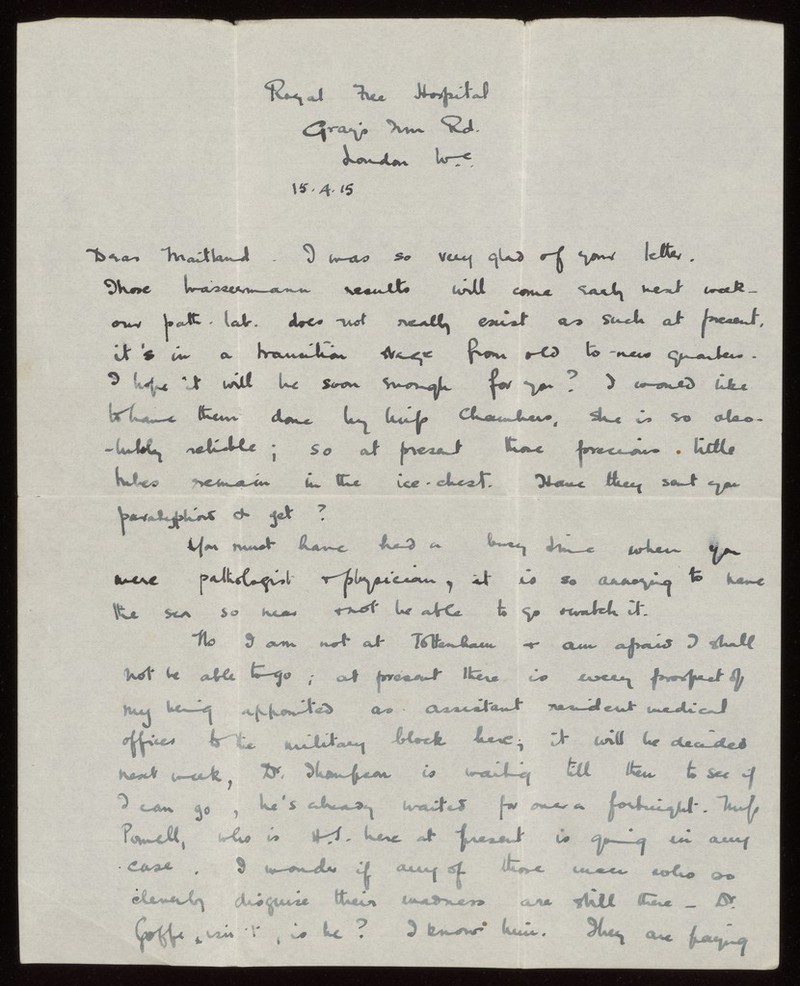 Royal Free Hospital
Gray's Inn Rd.
London W.C.
15.4.15
Dear Maitland. I was so very glad of your letter.
Those Wassermann results will come early next week -
our path. lab. does not really exist as such at present,
it's in a transition stage from old to new quarters.
I hope it will be soon enough for you? I would like
to have them done by Miss Chambers, she is so abso-
-lutely reliable; so at present those precious little
tubes remain in the ice-chest. Have they sent you
yet?
You must have had a busy time when you
were pathologist & physician, it is so annoying to have
the sea so near & not be able to go & watch it.
No I am not at Tottenham & am afraid I shall
not be able to go; at present there is every prospect of
my being appointed as assistant resident medical
officer to the military block here; it will be decided
next week, Dr. Thompson is waiting till then to see if
I can go, he's already waited for over a fortnight. Miss
Powell, who is H.S. here at present is going in any
case. I wonder if any of those men who so
cleverly disguise their madness are still there - Dr.
Goffe, isn't, is he? I know him. They are paying